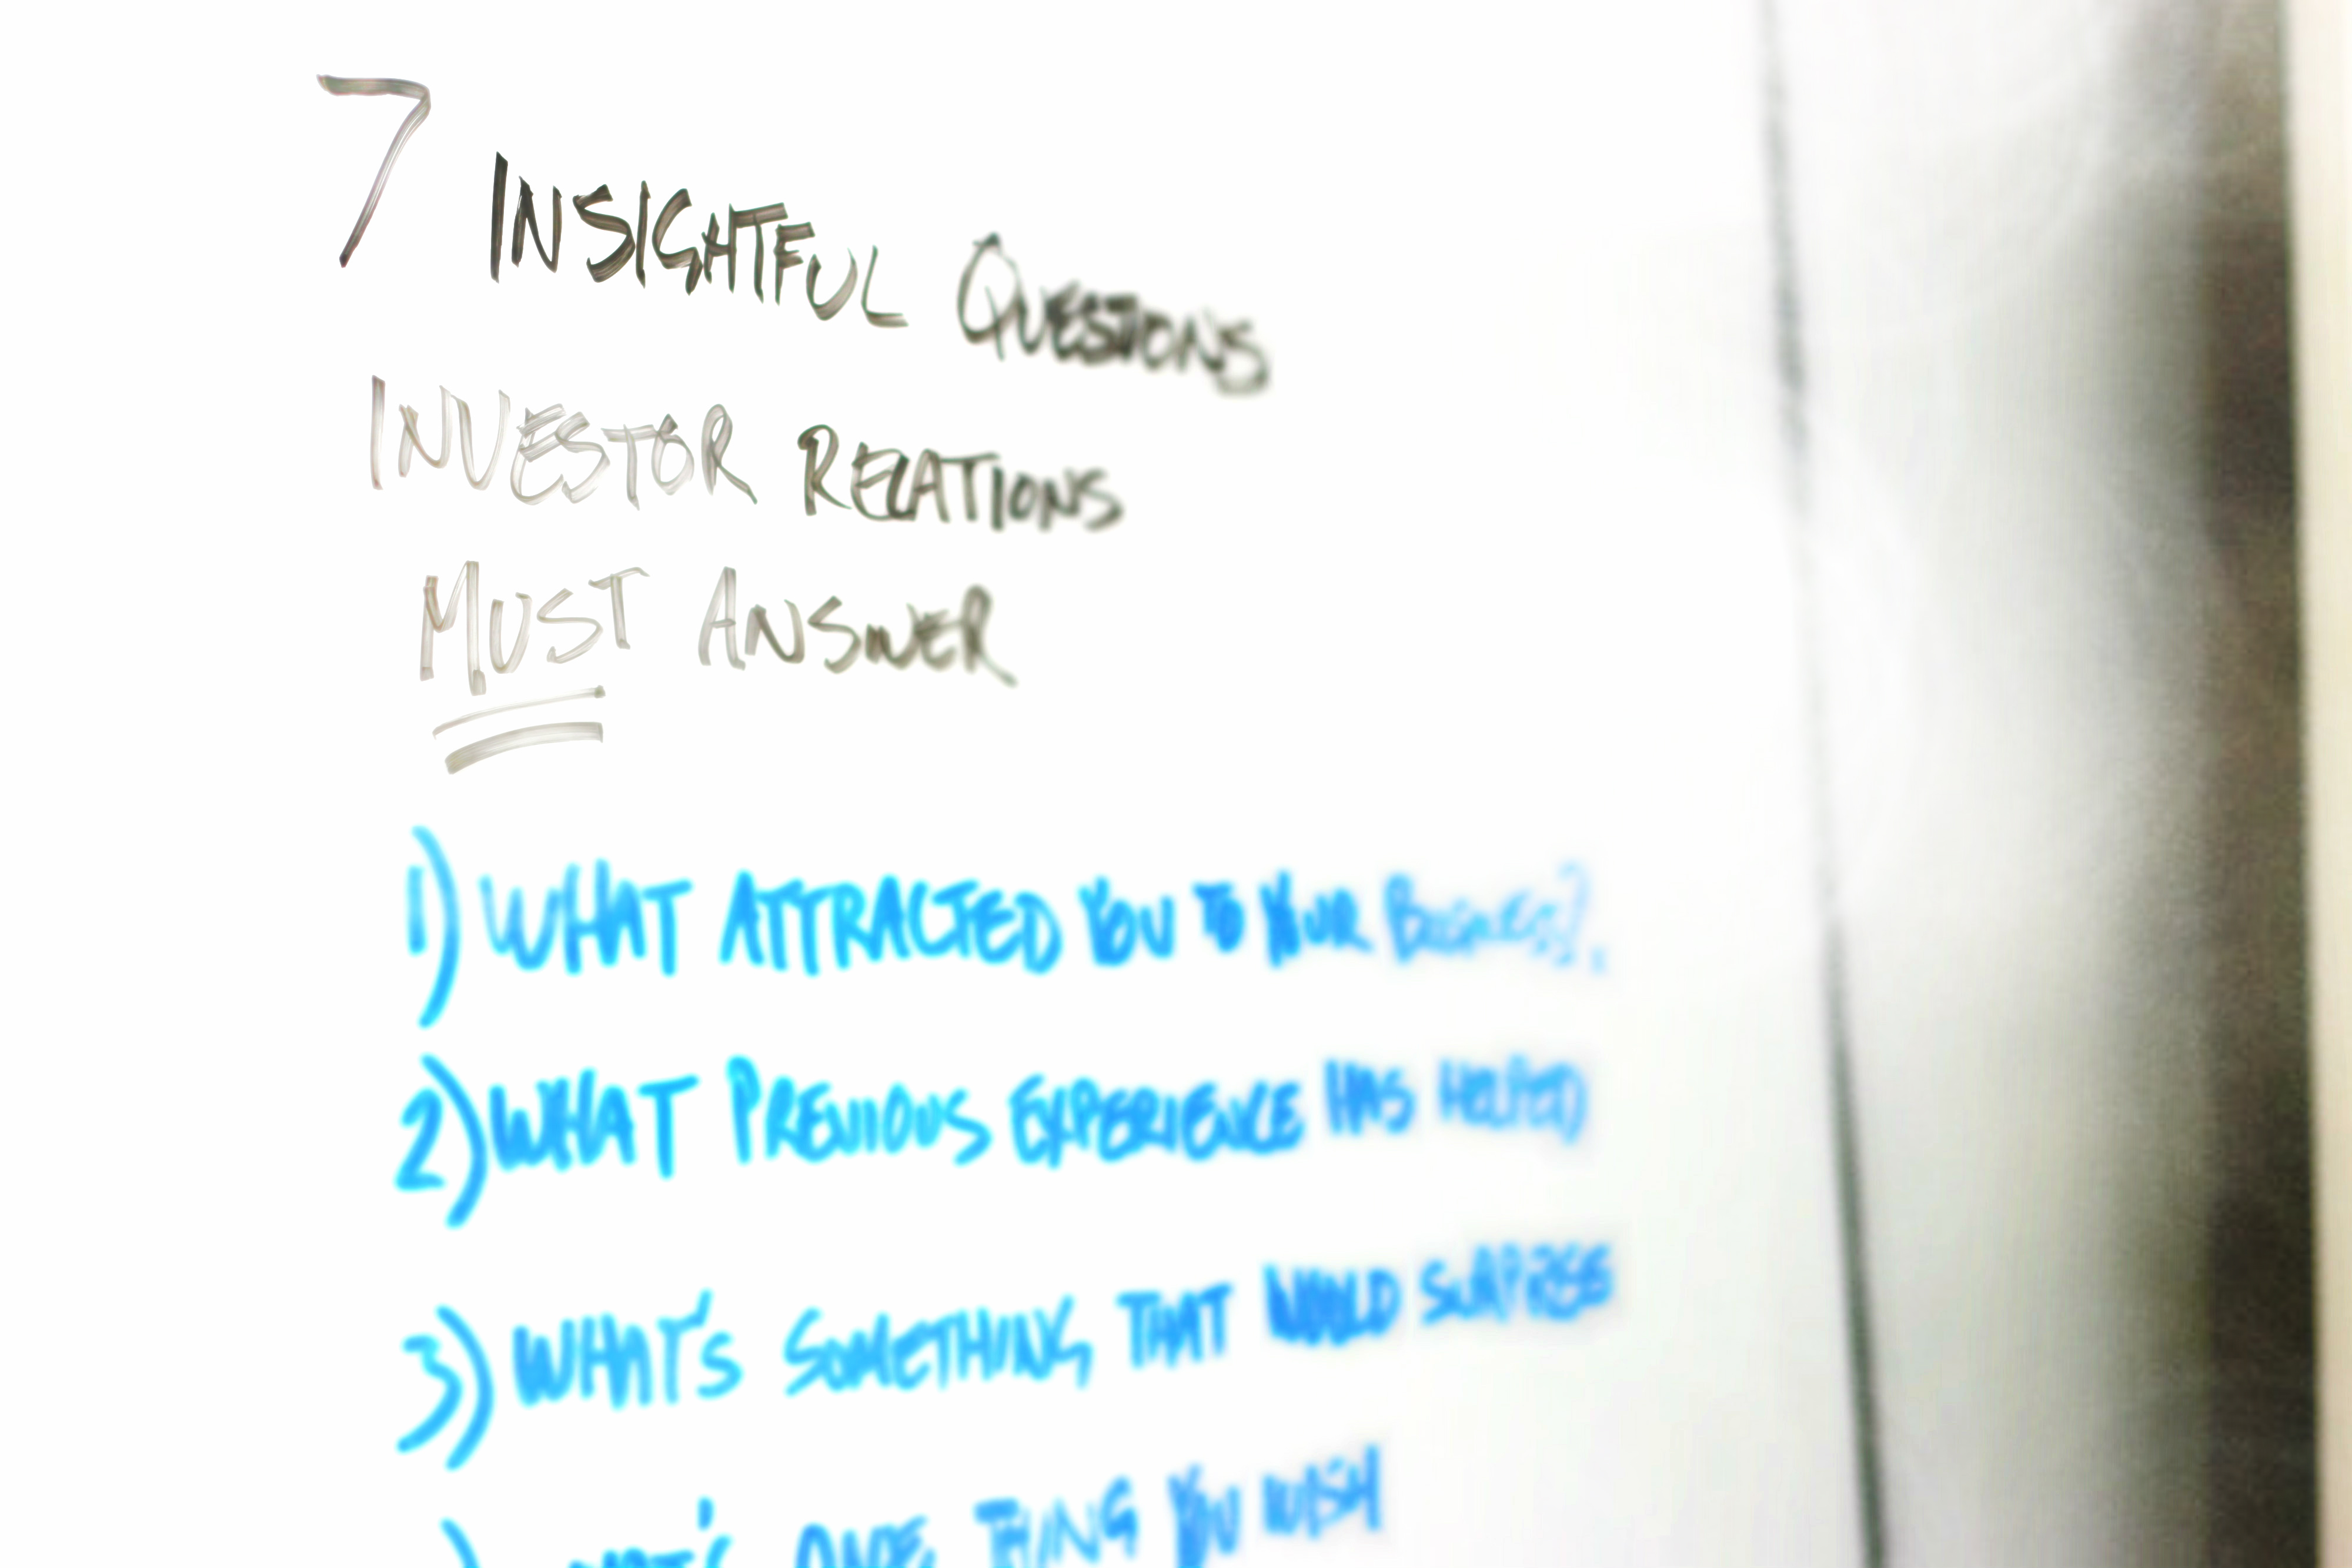 7 INSIGHTFUL QUESTIONS
INVESTOR RELATIONS
MUST ANSWER
1) WHAT ATTRACTED YOU TO YOUR
2) WHAT PREVIOUS EXPERIENCE HAS HELPED
3) WHAT'S SOMETHING THAT WOULD SURPRISE
) WHAT'S ONE THING YOU WISH